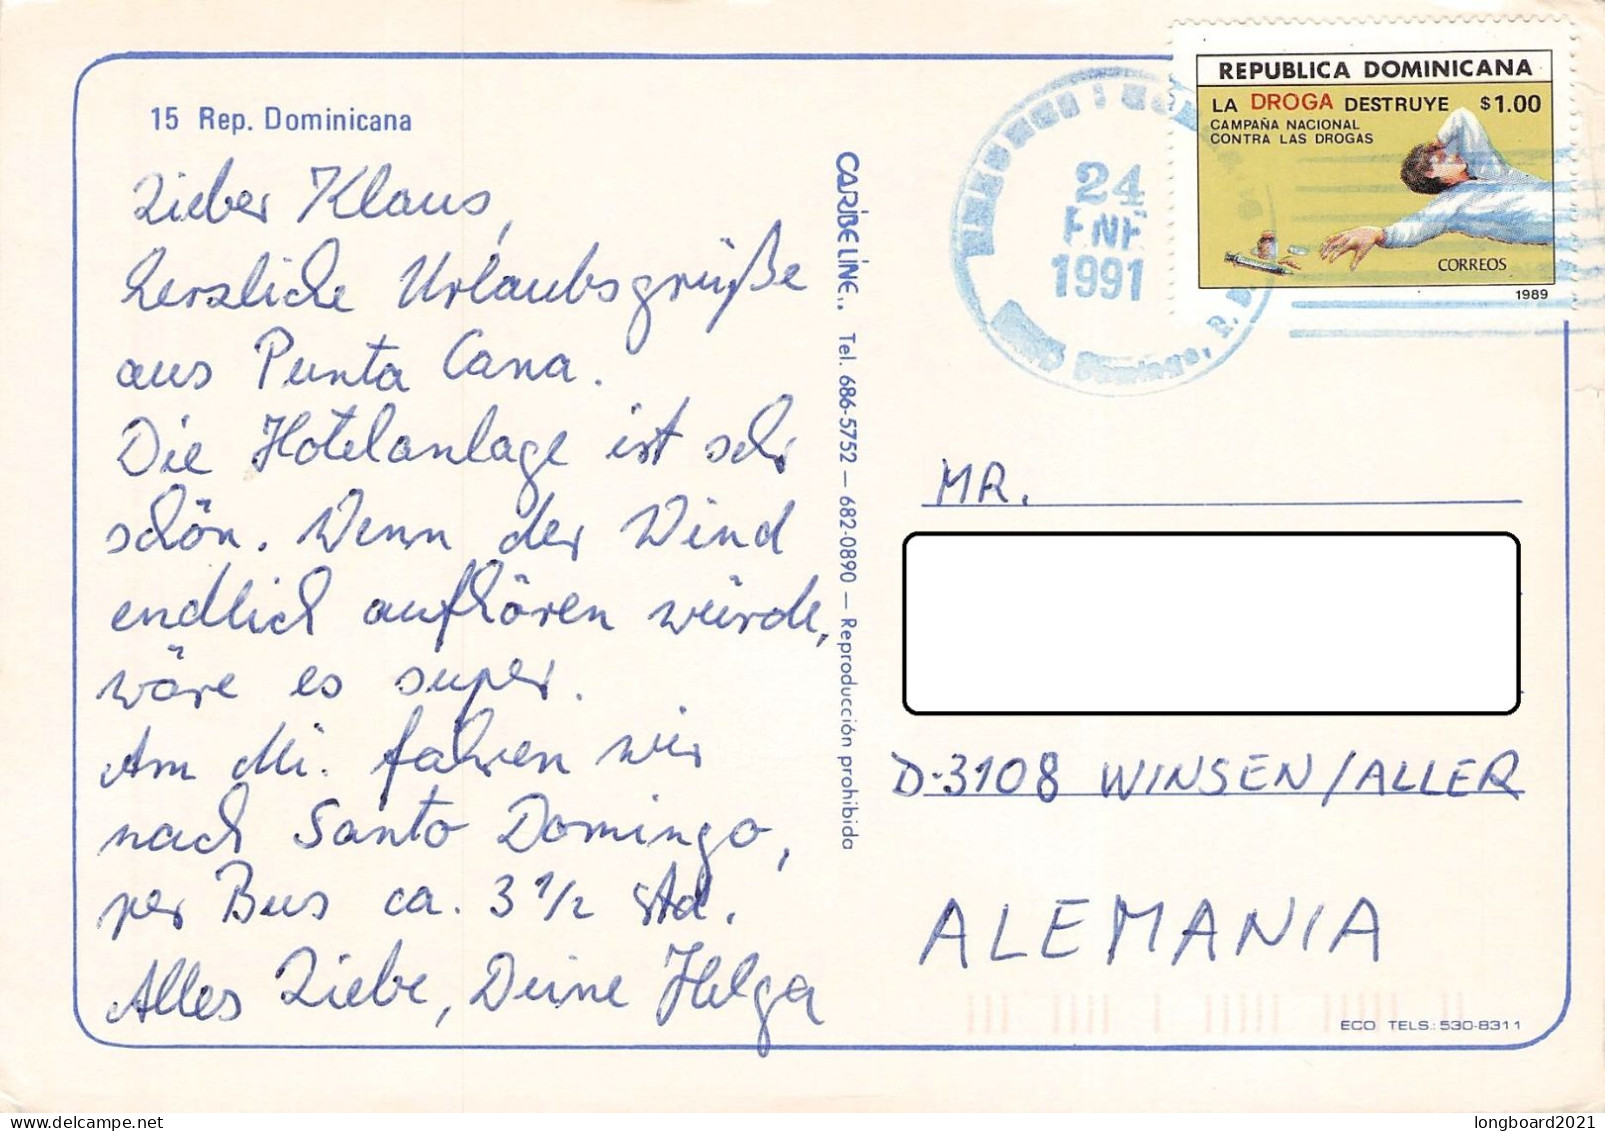 15 Rep. Dominicana
Lieber Klaus,
herzliche Urlaubsgrüße
aus Punta Cana.
Die Hotelanlage ist sehr
schön. Wenn der Wind
endlich aufhören würde,
wäre es super.
Am Mi. fahren wir
nach Santo Domingo,
per Bus ca. 3 1/2 Std.
Alles Liebe, Deine Helga
CARIBE LINE.. Tel. 686-5752 — 682-0890 — Reproducción prohibida
24
ENE
1991
Domingo, R. D.
REPUBLICA DOMINICANA
LA DROGA DESTRUYE $1.00
CAMPAÑA NACIONAL
CONTRA LAS DROGAS
CORREOS
1989
MR.
D-3108 WINSEN/ALLER
ALEMANIA
ECO TELS.: 530-8311
longboard2021